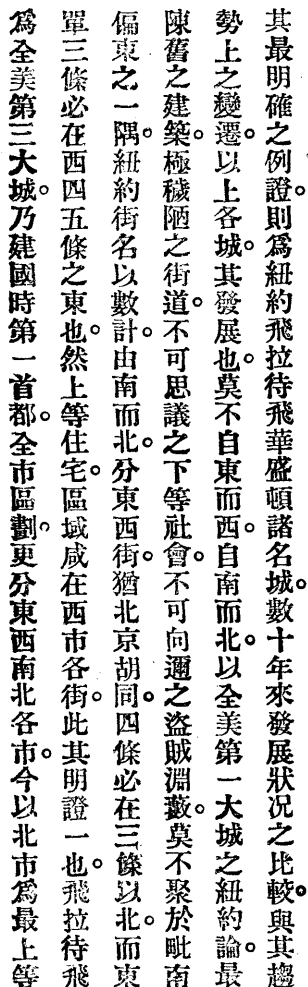 其最明確之例證。則爲紐約飛拉待飛華盛頓諸名城。數十年來發展狀况之比較。與其趨
勢上之變遷。以上各城。其發展也。莫不自東而西。自南而北。以全美第一大城之紐約論。最
陳舊之建築。極穢陋之街道。不可思議之下等社會。不可向邇之盜賊淵藪。莫不聚於毗南
偏東之一隅。紐約街名以數計。由南而北。分東西街。猶北京胡同。四條必在三條以北。而東
單三條必在西四五條之東也。然上等住宅。區域咸在西市各街。此其明證一也。飛拉待飛
爲全美第三大城。乃建國時第一首都。全市區劃。更分東西南北各市。今以北市爲最上等